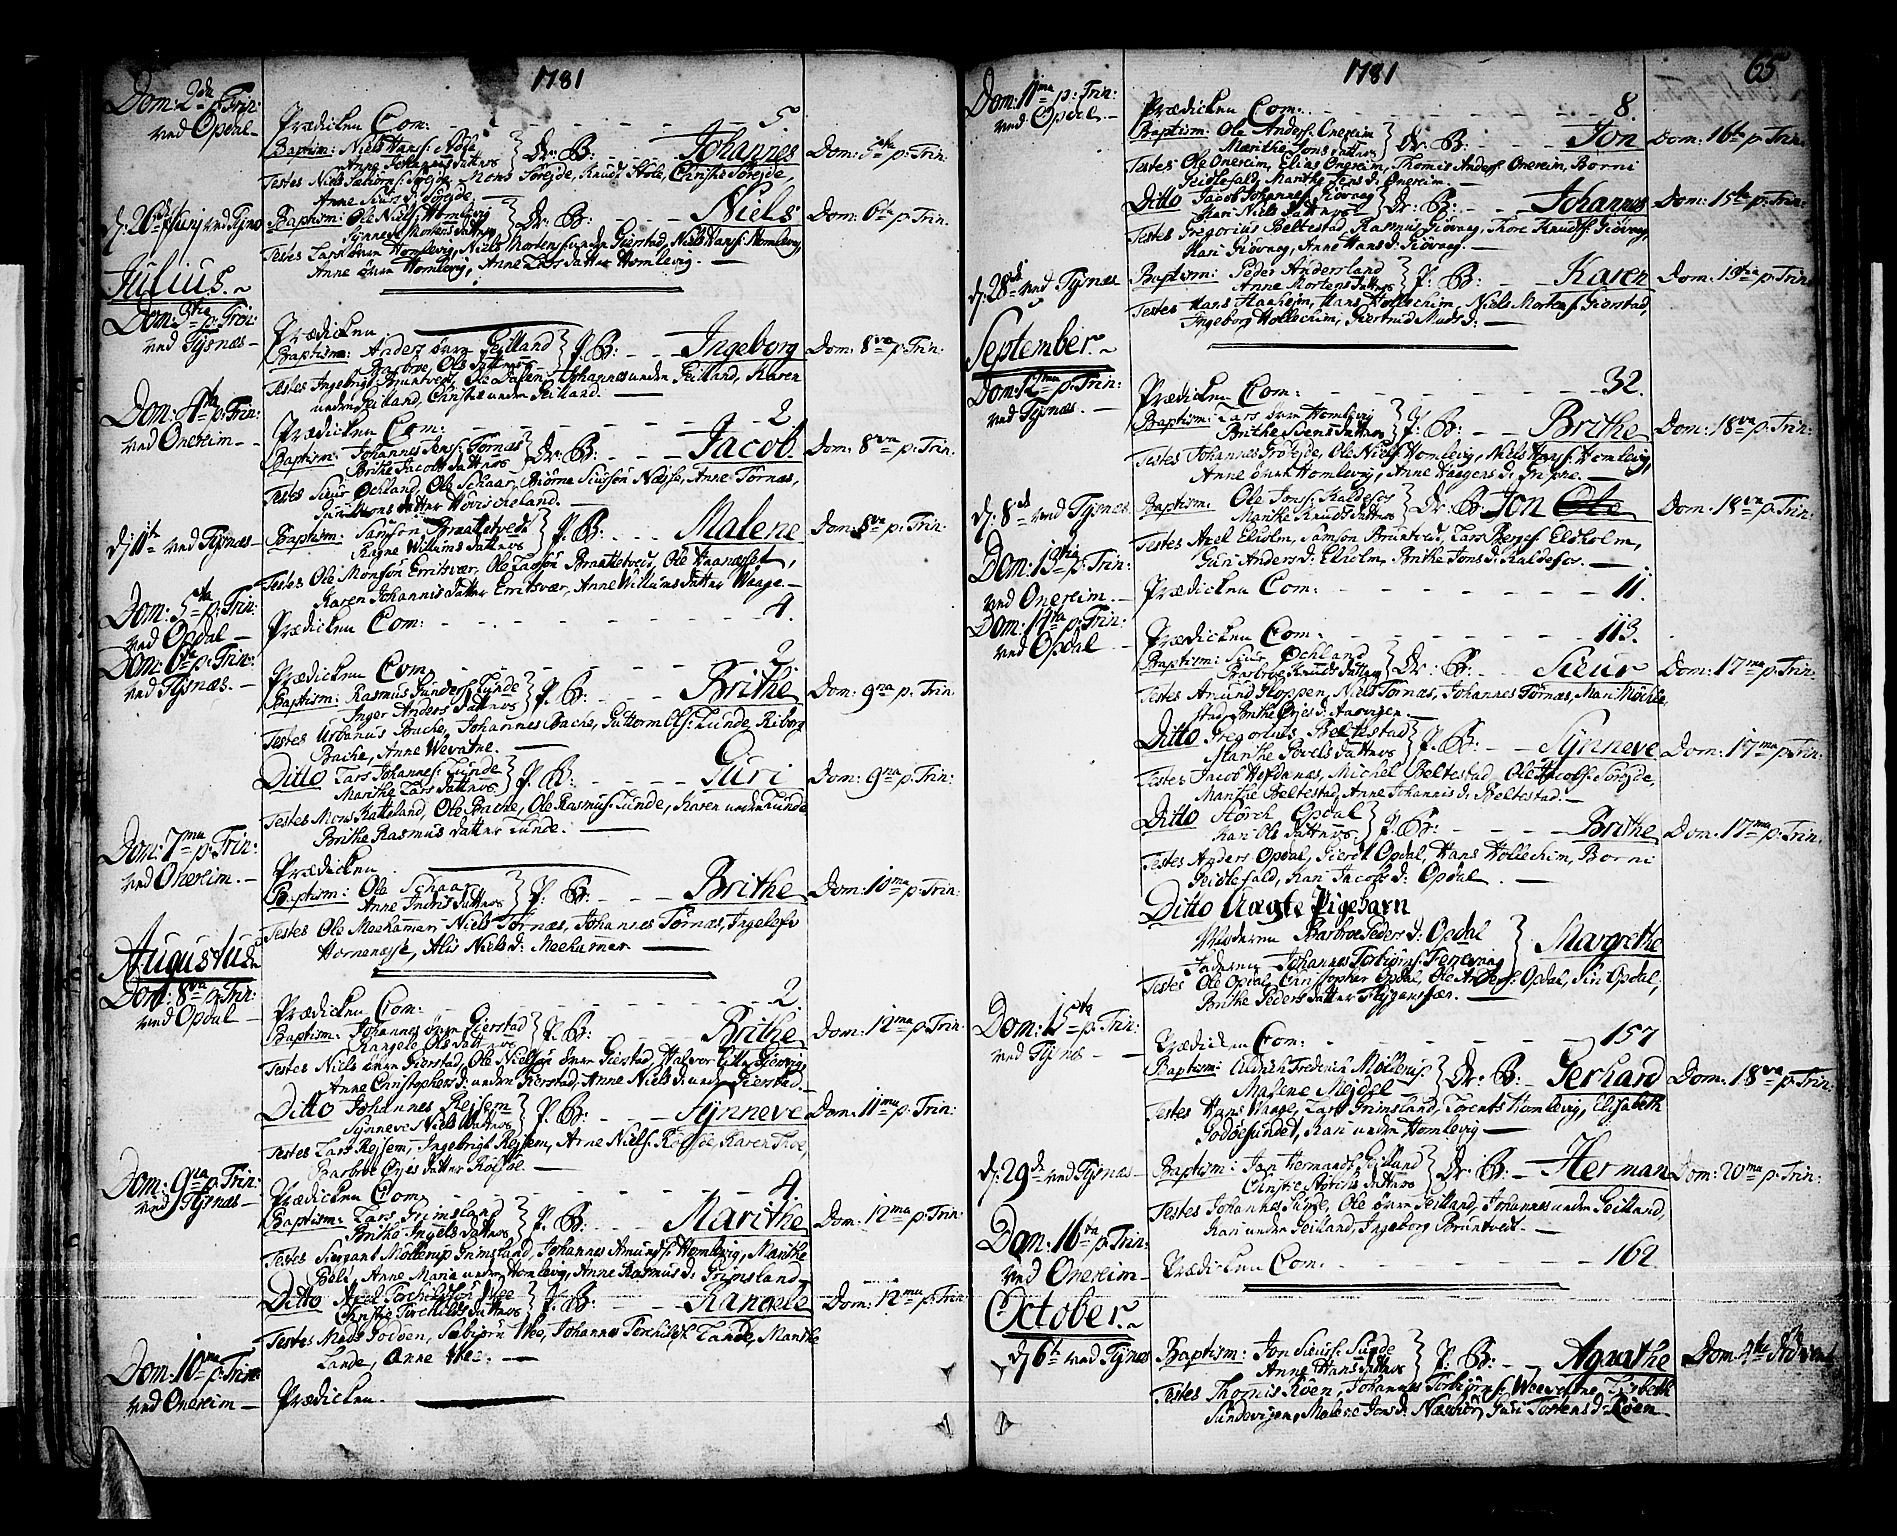 1781
Dom: 2den p: Trin:
ved Opdal
Prædicken Com: 5
Baptism: Niels Hans:
Anne Johannis Datter } Dr: B: Johannes Dom: 5ta p: Trin:
Testes Niels Søreide, Mons Søreide, Knud Hole, Christi Søreide,
Anne Siurs d: Søreide
d: 26de Junij ved Tysnes Baptism: Ole Niels: Homlevig
Synneve Mortens Datter } Dr: B: Niels Dom: 6ta p: Trin:
Testes Lars øvre Homlevig, Niels Mortens: unden Gierstad, Niels Hans: Homlevig
Anne øvre Homlevig, Anne Lars Datter Homlevig.
Julius
Dom: 3tia p: Trin:
ved Tysnæs
Prædicken
Baptism: Anders øvre Geilland
Barbroe Ols Datter } P: B: Ingeborg Dom: 8va p: Trin:
Testes Ingebrigt Bruntvedt, Ole Johannes unden Geilland, Karen
unden Geilland, Christie unden Geilland.
Dom: 4ta p: Trin:
ved Onereim
Prædicken Com: 2
Baptism: Johannes Jens: Tornæs
Brithe Jacobs Datter } Dr: B: Jacob Dom: 8va p: Trin:
Testes Siur Ochland, Ole Schaar, Biørne Siursøn Næsse, Anne Tornæs,
Guri Mons Datter
d: 11te ved Tysnæs Baptism: Samson Braattetvedt
Ragne Willums Datter } P: B: Malene Dom: 8va p: Trin:
Testes Ole Monsøn Erritsvær, Ole Larsøn Braattetvedt, Ole Haaenæsset,
Karen Johannis Datter Erritsvær, Anne Willums Datter Waage.
Dom: 5ta p: Trin:
ved Opdal
Prædicken Com: 4.
Dom: 6ta p: Trin:
ved Tysnæs
Prædicken Com: 2.
Baptism: Rasmus Lunde
Inger Anders Datter } P: B: Brithe Dom: 9na p: Trin:
Testes Urbanus Bache, Johannes Bache, Guttorm Ols: Lunde, Riborg
Bache, Anne Wevatne.
Ditto Lars Johannes: Lunde
Marithe Lars Datter } P: B: Guri Dom: 9na p: Trin:
Testes Mons Ratteland, Ole Bache, Ole Rasmus: Lunde, Karen unden Lunde
Brithe Rasmus Datter Lunde.
Dom: 7ma p: Trin:
ved Onereim
Prædicken
Baptism: Ole Schaar
Anne Datter } P: B: Brithe Dom: 10ma p: Trin:
Testes Ole Meehamer, Niels Tornæs, Johannes Tornæs, Ingeleif
Hornenesse, Alis Niels d: Meehamer
Augustus
Dom: 8va p: Trin:
ved Opdal
Prædicken Com: 2
Baptism: Johannes øvre Gierstad
Rangele Ols Datter } P: B: Brithe Dom: 12ma p: Trin:
Testes Niels øvre Gierstad, Ole Nielssøn øvre Gierstad, Halvor Lille Giervig,
Anne Christophers d: unden Gierstad, Anne Niels d: unden Gierstad.
Ditto Johannes Reisem
Synneve Niels Datter } P: B: Synneve Dom: 11ma p: Trin:
Testes Lars Reisem, Ingebrigt Reisem, Arne Niels:
Barbroe Øjes Datter
Dom: 9na p: Trin:
ved Tysnæs
Prædicken Com: 4
Baptism: Lars Grimsland
Brithe Ingels Datter } P: B: Marithe Dom: 12ma p: Trin:
Testes Siergant Møllerup Grimsland, Johannes Amunds: Homlevig, Marithe
Anne Maria unden Homlevig, Anne Rasmus d: Grimsland
Ditto Axel Torchildsøn Wee
Christie Torchilds Datter } P: B: Rangele Dom: 12ma p: Trin:
Testes Mads Godøen, Sæbiørn Wee, Johannes Torchilds: Lande, Marithe
Lande, Anne Wee.
Dom: 10ma p: Trin:
ved Onereim Prædicken.
1781 65
Dom: 11ma p: Trin:
ved Opdal
Prædicken Com: 8.
Baptism: Ole Anders: Onereim
Marithe Jons Datter } Dr: B: Jon Dom: 16te p: Trin:
Testes Ole Onereim, Elias Onereim, Thomas Anders: Onereim, Borni
Geidlefald, Marithe Jens d: Onereim
Ditto Jacob Johannes: Giøvaag
Kari Niels Datter } Dr: B: Johannes Dom: 15te p: Trin:
Testes Gregorius Beltestad, Rasmus Giøvaag, Thore Knuds: Giøvaag,
Kari Giøvaag, Anne Hans d: Giøvaag.
d: 28de ved Tysnæs Baptism: Peder Andersland
Anne Mortens Datter } P: B: Karen Dom: 13tia p: Trin:
Testes Hans Haaheim, Hans Hollechim, Niels Mortens: Gierstad,
Ingeborg Hollechim, Giertrud Mads d:
September
Dom: 12ma p: Trin:
ved Tysnæs.
Prædicken Com: 32.
Baptism: Lars øvre Homlevig
Brithe Datter } P: B: Brithe Dom: 18va p: Trin:
Testes Johannes Søreide, Ole Niels: Homlevig, Niels Hans: Homlevig,
Anne øvre Homlevig, Anne Haagens d:
d: 8de ved Tysnæs Baptism: Ole Jons: Kaldefos
Marithe Knuds Datter } Dr: B: Jon Ole Dom: 18va p: Trin:
Testes Axel Elholm, Samson Bruntved, Lars Elholm,
Guri Anders d: Elholm, Brithe Jons d: Kaldefos.
Dom: 13tia p: Trin:
ved Onereim
Prædicken Com: 11.
Dom: 14ta p: Trin:
ved Opdal
Prædicken Com: 113.
Baptism: Siur Ochland
Barbroe Knuds Datter } Dr: B: Siur Dom: 17ma p: Trin:
Testes Amund Hoppen, Niels Tornæs, Johannes Tornæs, Mari Møchle-
stad, Brithe Øjes d:
Ditto Gregorius Beltestad
Marithe Povels Datter } P: B: Synneve Dom: 17ma p: Trin:
Testes Jacob Hofdanæs, Michel Beltestad, Ole Jacobs: Søreide,
Marithe Beltestad, Anne Johannis d: Beltestad.
Ditto Størck Opdal
Kari Ols Datter } P: B: Brithe Dom: 17ma p: Trin:
Testes Anders Opdal, Giert Opdal, Hans Hollechim, Borni
Geidlefald, Kari Jacobs d: Opdal.
Ditto Uægte Pigebarn
Moderen Barbroe Peders d: Opdal
Faderen Johannes Torbiørns: Ferrevaag } Margrethe
Testes Ole Opdal, Christopher Opdal, Ole Anders: Opdal, Siri Opdal,
Brithe Peders Datter Flygensfær.
Dom: 15ta p: Trin:
ved Tysnæs
Prædicken Com: 157
Baptism: Frederich Møllerup:
Malene Mejdel } Dr: B: Gerhard Dom: 18va p: Trin:
Testes Hans Waage, Lars Grimsland, Lorents Homlevig, Elisabeth
Godøesundet, Kari unden Homlevig
d: 29de ved Tysnæs Baptism: Jan Hermands: Geilland
Christie Datter } Dr: B: Herman Dom: 20ma p: Trin:
Testes Johannes Lunde, Ole øvre Geilland, Johannes unden Geilland,
Kari unden Geilland, Ingeborg Bruntvedt.
Dom: 16ta p: Trin:
ved Onereim
Prædicken Com: 162
October
d: 6te ved Tysnæs Baptism: Jon Siurs: Sunde
Anne Hans Datter } P: B: Agnethe Dom: 4ta Advent
Testes Thomis Røen, Johannes Torbiørns: Weevatne,
Sundevigen, Malene Jons d: Guri Torstens d: Røen